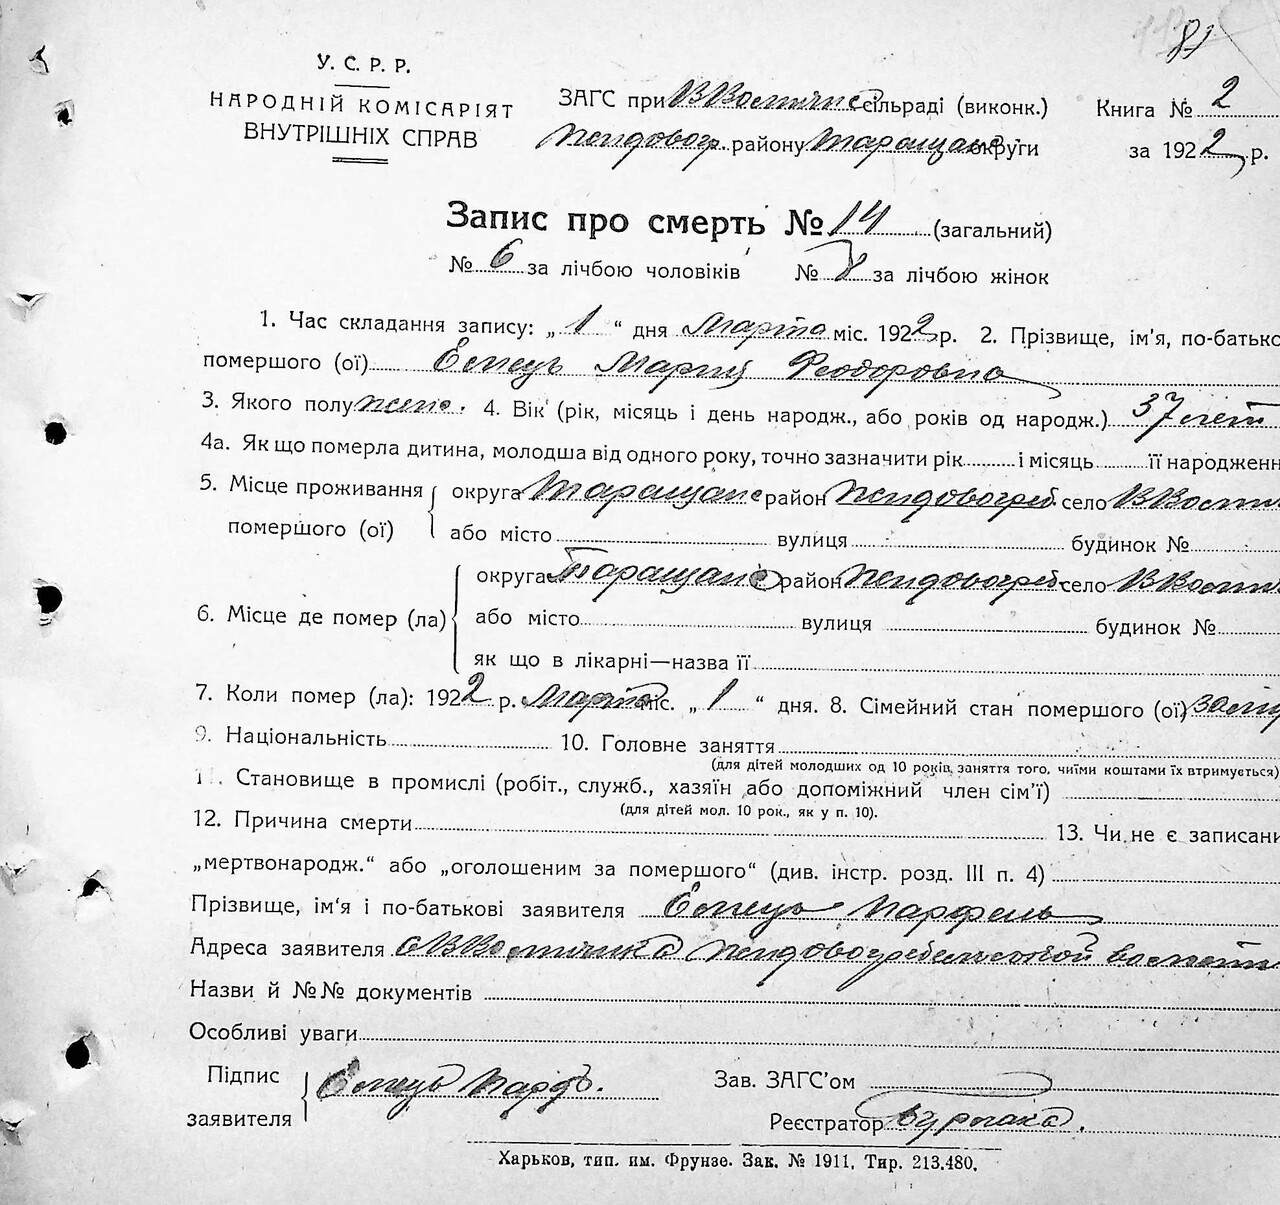 81
У. С. Р. Р.
НАРОДНІЙ КОМІСАРІЯТ
ВНУТРІШНІХ СПРАВ
ЗАГС при сільраді (виконк.)
району округи
Книга № 2
за 1922 р.
Запис про смерть № 14 (загальний)
№ 6 за лічбою чоловіків № 8 за лічбою жінок
1. Час складання запису: „ 1 “ дня Марта міс. 1922 р. 2. Прізвище, ім'я, по-батько
помершого (ої) Емець Мария Феодоровна
3. Якого полу жено. 4. Вік (рік, місяць і день народж., або років од народж.) 37 лет
4а. Як що померла дитина, молодша від одного року, точно зазначити рік і місяць її народженн
5. Місце проживання помершого (ої) округа район село
або місто вулиця будинок №
6. Місце де помер (ла) округа район село
або місто вулиця будинок №
як що в лікарні—назва її
7. Коли помер (ла): 1922 р. Марта міс. „ 1 “ дня. 8. Сімейний стан помершого (ої)
9. Національність 10. Головне заняття
(для дітей молодших од 10 років, заняття того, чиїми коштами їх втримується)
11. Становище в промислі (робіт., служб., хазяїн або допоміжний член сім'ї)
(для дітей мол. 10 рок., як у п. 10).
12. Причина смерти 13. Чи не є записани
„мертвонародж.“ або „оголошеним за помершого“ (див. інстр. розд. III п. 4)
Прізвище, ім'я і по-батькові заявителя Емець Парфень
Адреса заявителя
Назви й №№ документів
Особливі уваги
Підпис заявителя Емець Парф.
Зав. ЗАГС'ом
Реєстратор
Харьков, тип. им. Фрунзе. Зак. № 1911. Тир. 213.480.